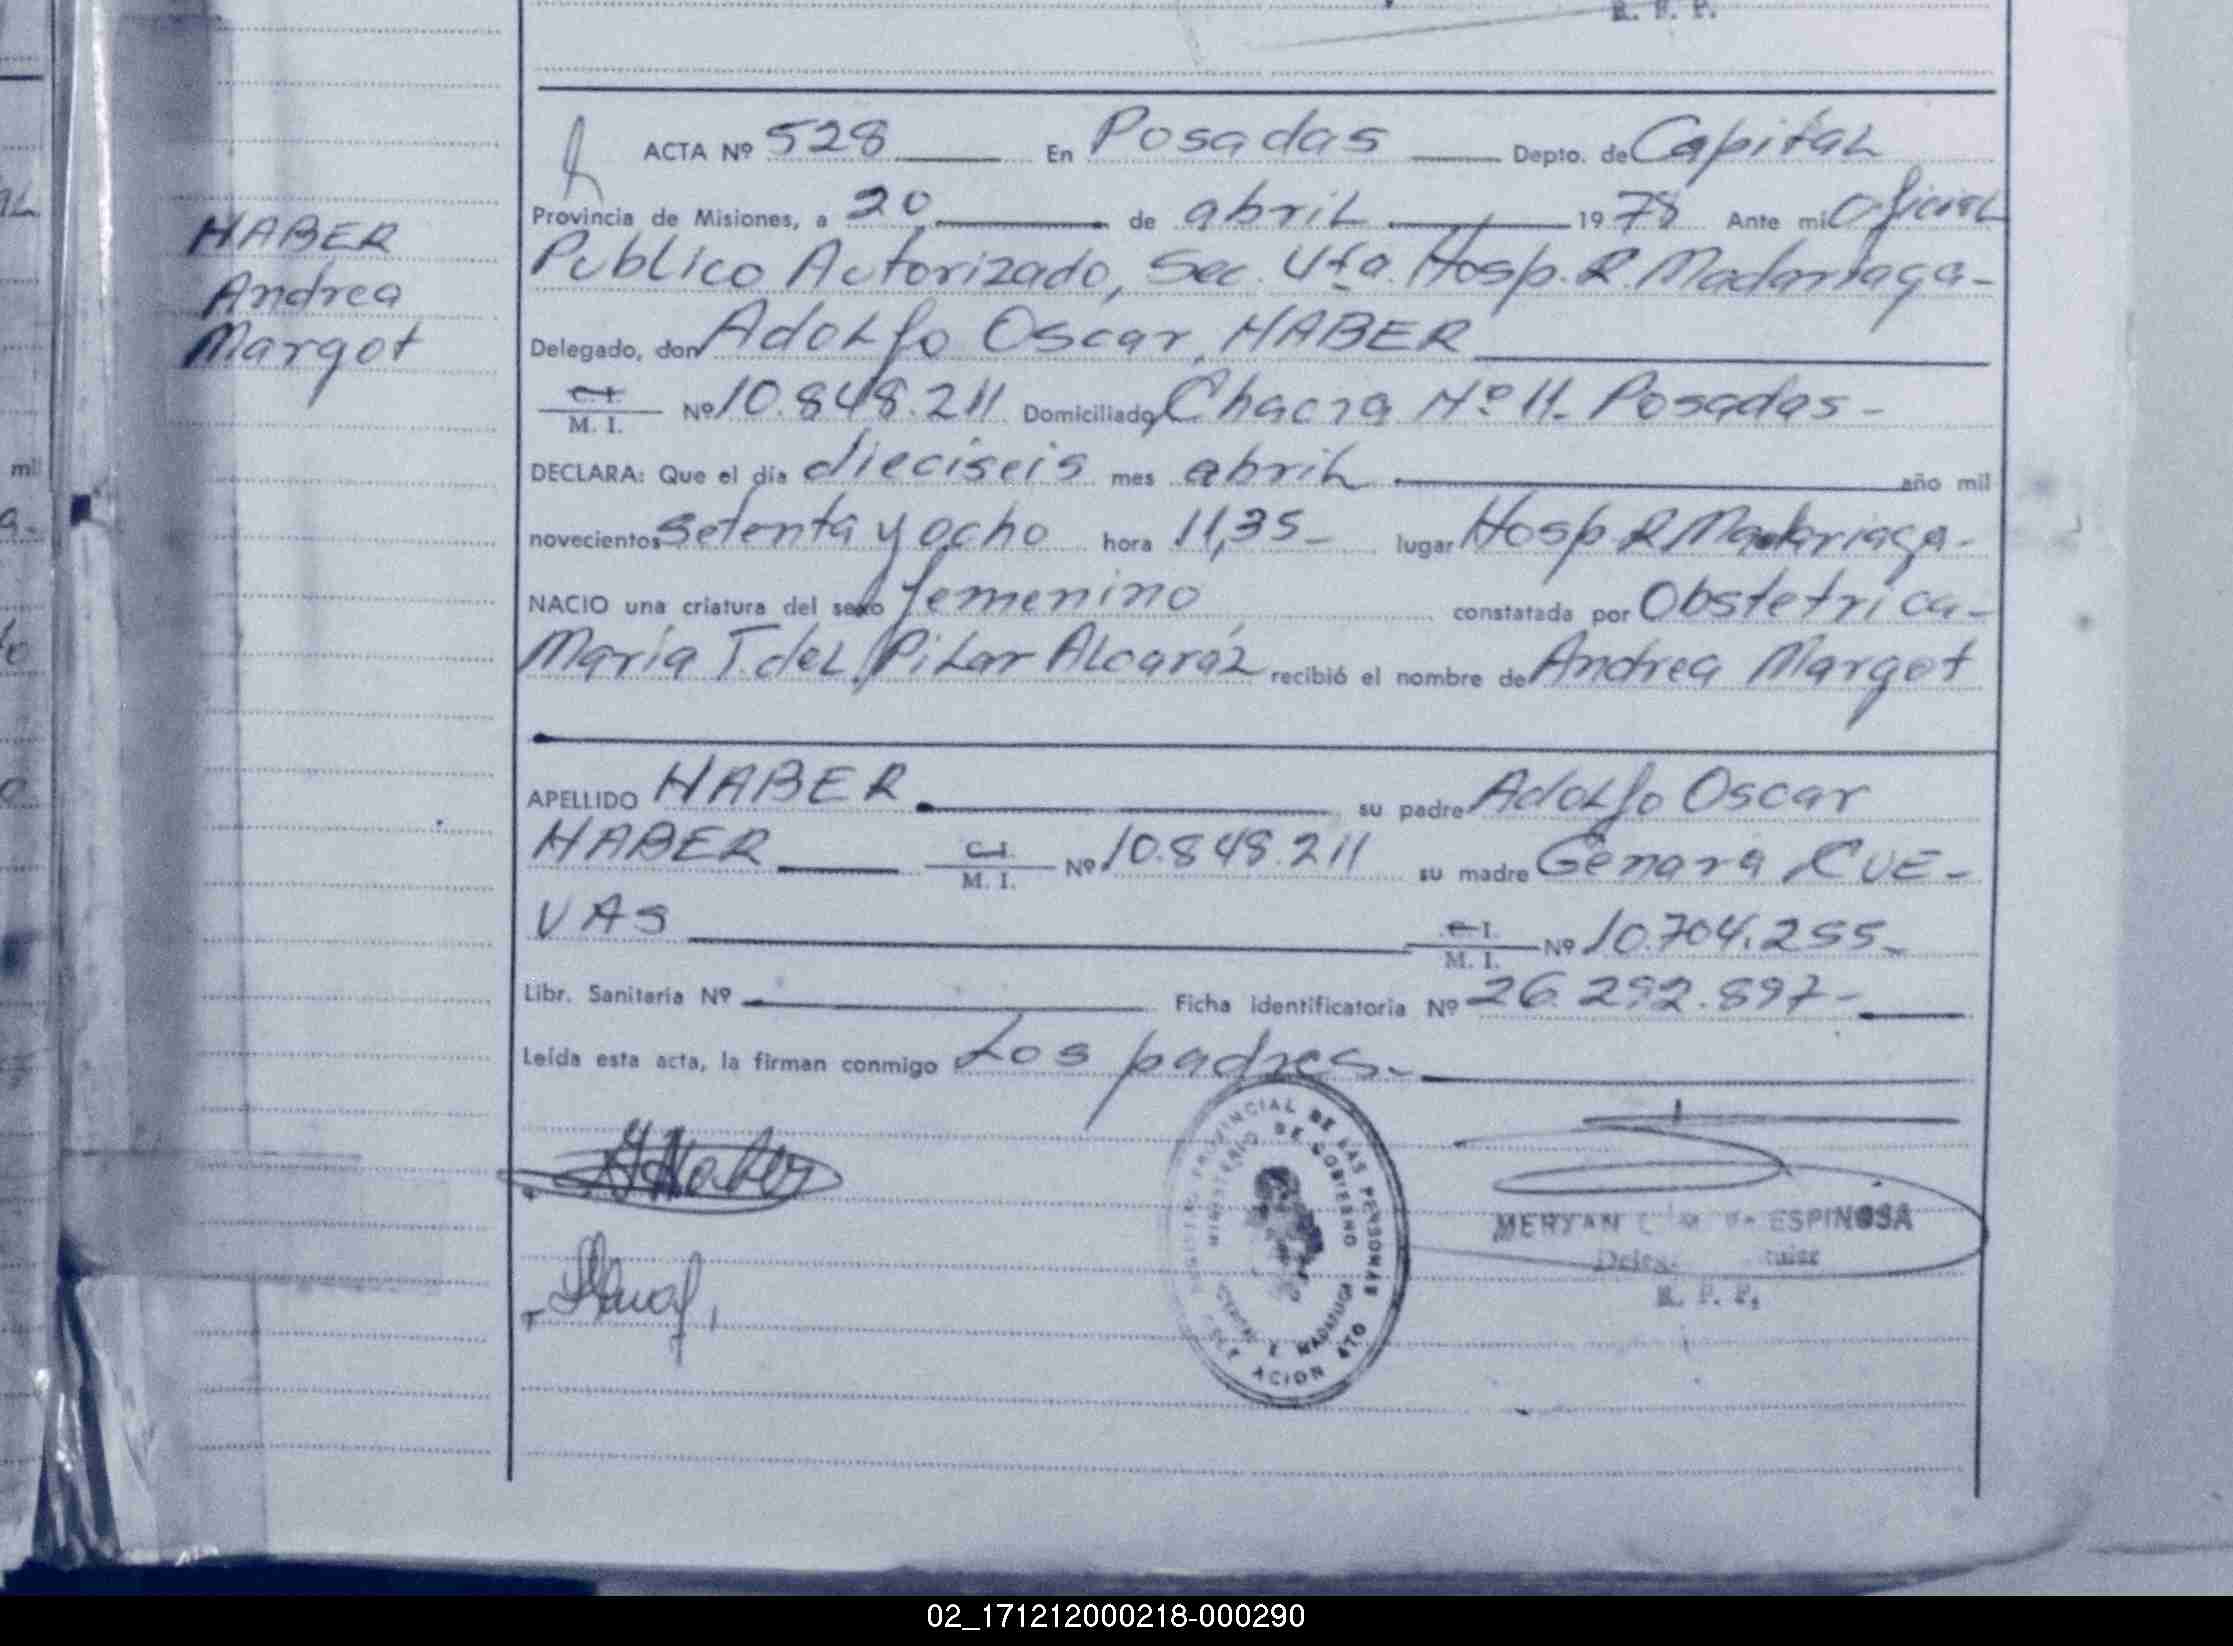 R. P. P.
HABER
Andrea
Margot
ACTA Nº 528 En Posadas Depto. de Capital
Provincia de Misiones, a 20 de abril 1978 Ante mi Oficial
Publico Autorizado, Sec. 4ta. Hosp. R. Madariaga-
Delegado, don Adolfo Oscar, HABER
C.I. M. I. Nº 10.848.211 Domiciliado Chacra Nº 11- Posadas-
DECLARA: Que el día dieciseis mes abril año mil
novecientos setenta y ocho hora 11,35- lugar Hosp R Madariaga-
NACIO una criatura del sexo femenino constatada por Obstetrica-
María T. del Pilar Alcaráz recibió el nombre de Andrea Margot
APELLIDO HABER su padre Adolfo Oscar
HABER C.I. M. I. Nº 10.848.211 su madre Genara, CUE-
VAS C.I. M. I. Nº 10.704.255-
Libr. Sanitaria Nº Ficha identificatoria Nº 26.292.897-
Leída esta acta, la firman conmigo Los padres.-
PROVINCIAL DE LAS PERSONAS
MINISTERIO DE GOBIERNO
MERYAN ESPINOSA
R. P. P.
mil
02_171212000218-000290